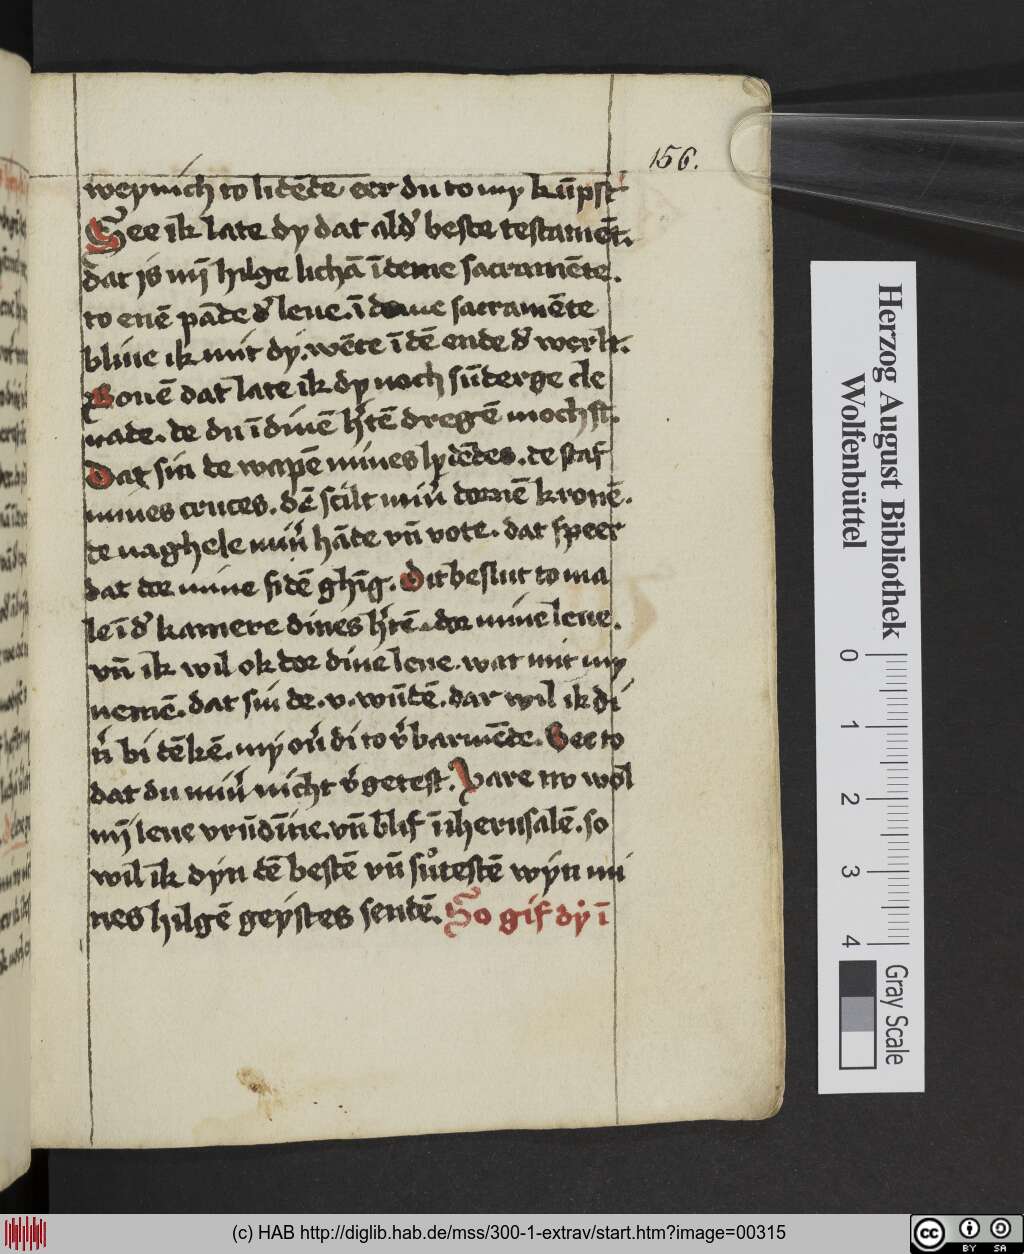 156.
weynich to lidēde eer du to my kūpst
See ik late dy dat ald' beste testamēt.
dat is mȳ hilge lichā ī deme sacramēte.
to enē pāde d' leue. ī deme sacramēte
bliue ik mit dy. wēte ī dē ende d' werlt.
Bouē dat late ik dy noch sūderge cle
nade. de du ī dinē h'tē dregē mochst.
Dat sin de wapē mines lydēdes. de staf
mines cruces. dē scilt mīn' dornē kronē.
de naghele mīn' hāde vn̄ vote. dat speer
dat dor mine sidē ghīg. Dit beslut to ma
le ī d' kamere dines h'tē. dor mine leue.
vn̄ ik wil ok dor dine leue. wat mit my
nemē. dat sin de. v. wūdē. dar wil ik di
n' bi dēkē. my ou' di to v'barmēde. See to
dat du mīn' nicht v'getest. Vare nv wol
mȳ leue vrūdīne. vn̄ blif ī iherusalē. so
wil ik dyn dē bestē vn̄ suͦtestē wyn mi
nes hilgē geystes sendē. So gif dy ī
Herzog August Bibliothek
Wolfenbüttel
0 1 2 3 4
Gray Scale
(c) HAB http://diglib.hab.de/mss/300-1-extrav/start.htm?image=00315
cc BY SA